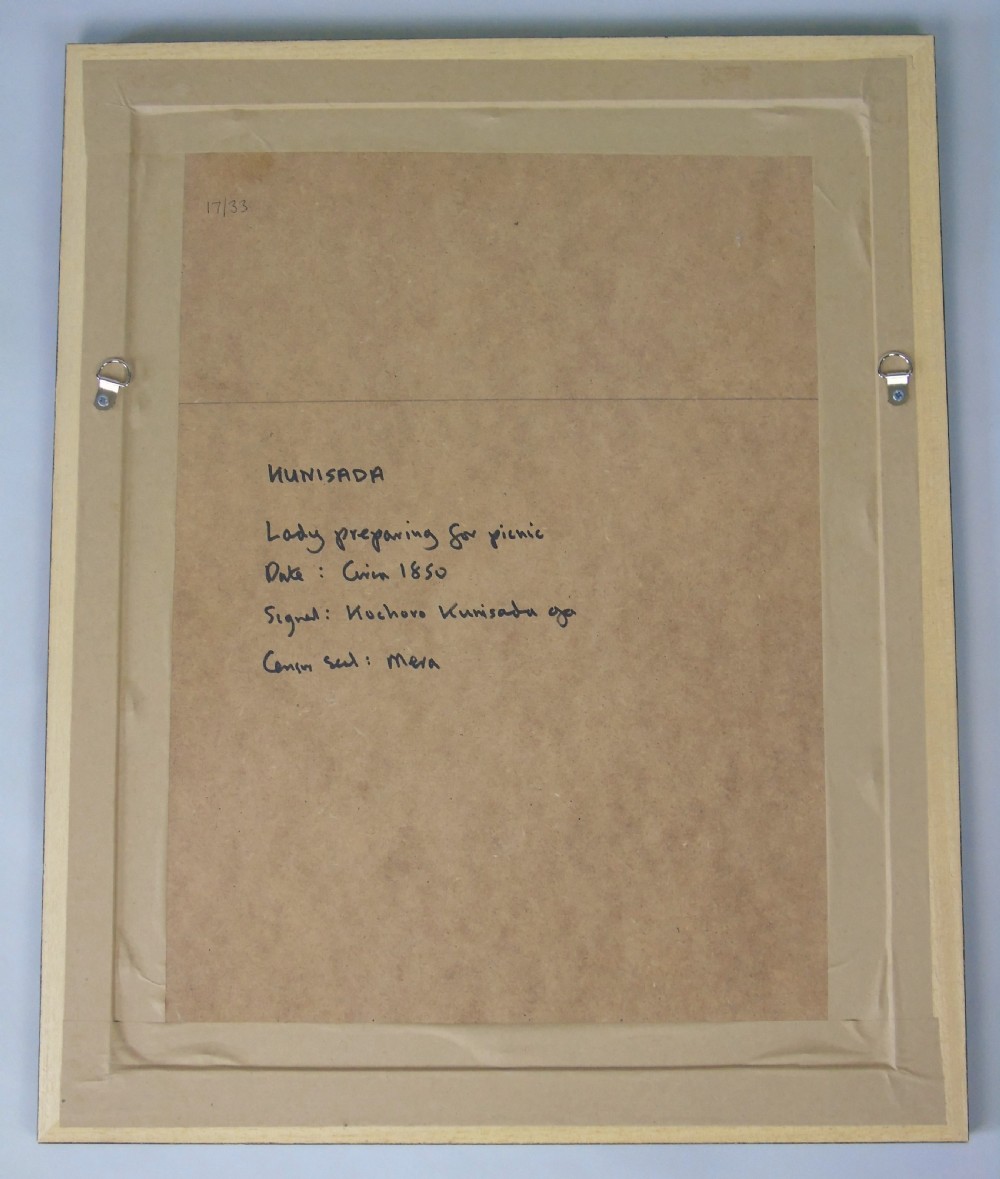 17/33
KUNISADA
Lady preparing for picnic
Date : Circa 1850
Signed: Kochoro Kunisada ga
Censor seal: Mera